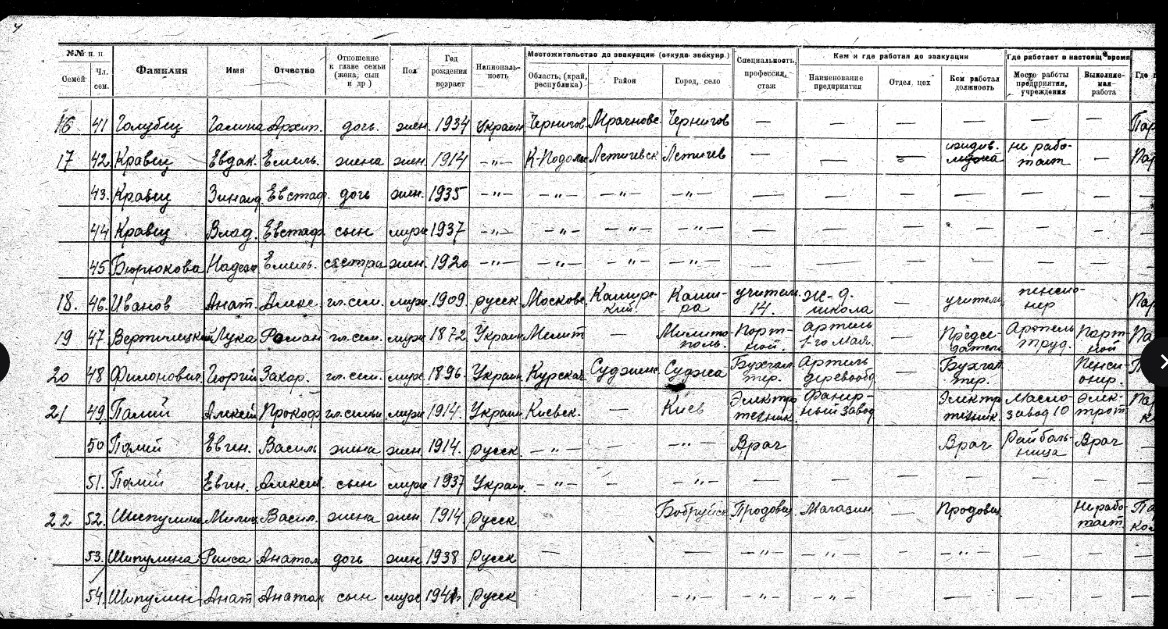 №№ п. п.
Местожительство до эвакуации (откуда эвакуир.)
Кем и где работал до эвакуации
Где работает в настоящ. время
Семей
Чл. сем.
Фамилия
Имя
Отчество
Отношение к главе семьи (жена, сын и др)
Пол
Год рождения возраст
Националь-ность
Область, (край, республика)
Район
Город, село
Специальность, профессия, стаж
Наименование предприятия
Отдел, цех
Кем работал должность
Место работы предприятия, учреждения
Выполняе-мая работа
Где
16 41 Голубец Галина Архип. дочь. жен. 1934 Украин Чернигов Чернигов — — — — — —
17 42. Кравец Евдак. Емиль. жена жен. 1914 -"- К-Подоль Летичевск Летичев — — — не рабо-тает —
43. Кравец Зинаид. Евстаф. дочь жен. 1935 -"- -"- -"- -"- — — — — — —
44 Кравец Влад. Евстаф. сын муж 1937 -"- -"- -"- -"- — — — — —
45 Бирюкова Надеж Емиль. сестра жен. 1920 -"- -"- -"- -"- — — — — — —
18. 46. Иванов Анат. Алекс. гл. сем. муж. 1909 русск Московс. Кашир-кий. Каши-ра учител. 14. ж-д. школа — учител. пенсио-нер
19 47 Лука Роман гл. сем. муж 1872 Украин Мелит — Мелито-поль. Порт-ной. Артель 1-го мая. — Предсе-датель Артель труд. Порт-ной
20 48 Георгий Захар. гл. сем. муж 1896 Украин. Курская Суджан Суджа Бухгал-тер. Артель деревообд. — Бухгал-тер. Пенси-онер.
21 49. Палий Алексей Прокоф гл. семьи муж. 1914. Украин Киевск. — Киев Электр-техник. Фанер-ный завод — Электр-техник. Масло-завод 10
50 Палий Евген. Василь жена жен 1914. русск. -"- — -"- Врач — — Врач Райболь-ница Врач
51. Палий Евген. Алексеи. сын муж 1937 Украин. -"- — -"- — — — — — —
22 52. Шипулина Васил. жена жен. 1914 Русск Бобруйск Продовец Магазин. — Продовец Нерабо-тает.
53. Шипулина Раиса Анатол дочь жен 1938 Русск — — -"- -"- — — -"- — —
54. Шипулин Анат Анатол сын муж Русск -"- — — — — — —